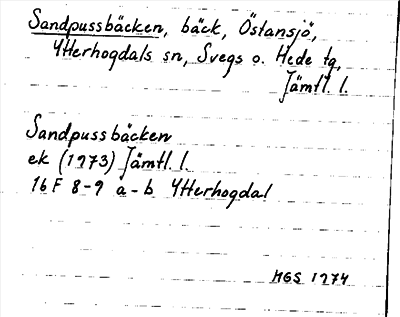 Sandpussbäcken, bäck, Östansjö,
Ytterhogdals sn, Svegs o. Hede tg,
Jämtl. l.
Sandpussbäcken
ek (1973) Jämtl. l.
16 F 8-9 a-b Ytterhogdal
MGS 1974